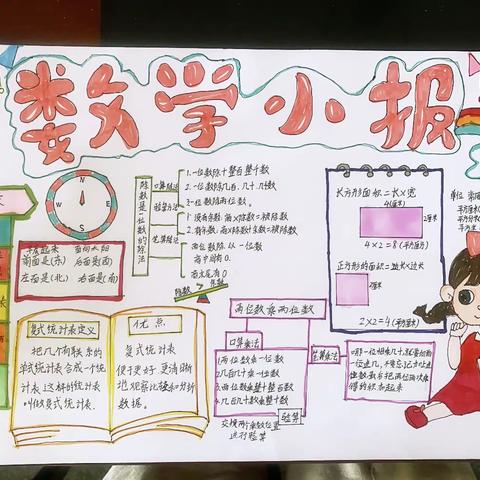 数学小报
N
W
E
S
早晨起来 面向太阳
前面是(东) 后面是(西)
左面是(北) 右面是(南)
除数是一位数的除法
口算除法
1.一位数除十整百整千数
2.一位数除几百、几十几的数
验算方法
笔算除法
1.没有余数:商×除数=被除数
中间有0.
末尾有0
除数
长方形面积=长×宽
4(厘米)
2厘米
4×2=8(平方厘米)
正方形的面积=边长×边长
2厘米
2×2=4(平方厘米)
复式统计表定义
把几个有联系的
单式统计表合成一个统
计表,这样的统计表
叫做复式统计表.
优点
复式统计表
便于更好,更清晰
地观察比较和分析
数据。
两位数乘两位数
口算乘法
1.两位数乘一位数
2.几百几十乘一位数
3.两位数乘整十整百数
4.几百几十数乘整十数
笔算乘法
验算
交换两个乘数位置
进行验算